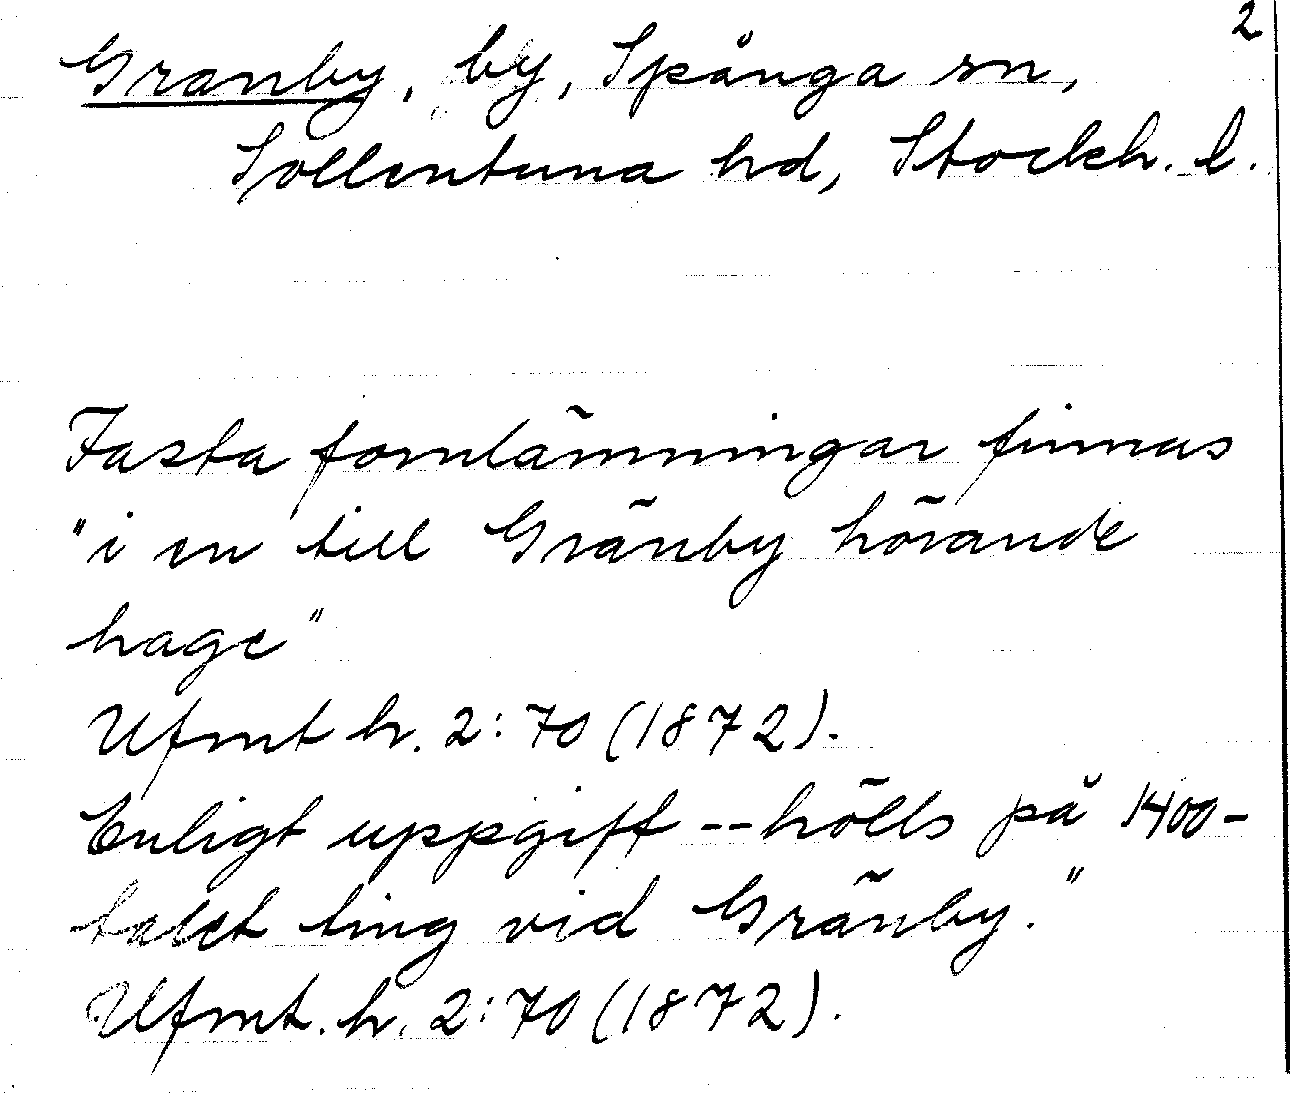 2
Granby, by, Spånga sn,
Sollentuna hd, Stockh. l.
Fasta fornlämningar finnas
"i en till Gränby hörande
hage"
Ufmt h. 2:70 (1872).
Enligt uppgift -- hölls på 1400-
talet ting vid Gränby."
Ufmt. h. 2:70 (1872).